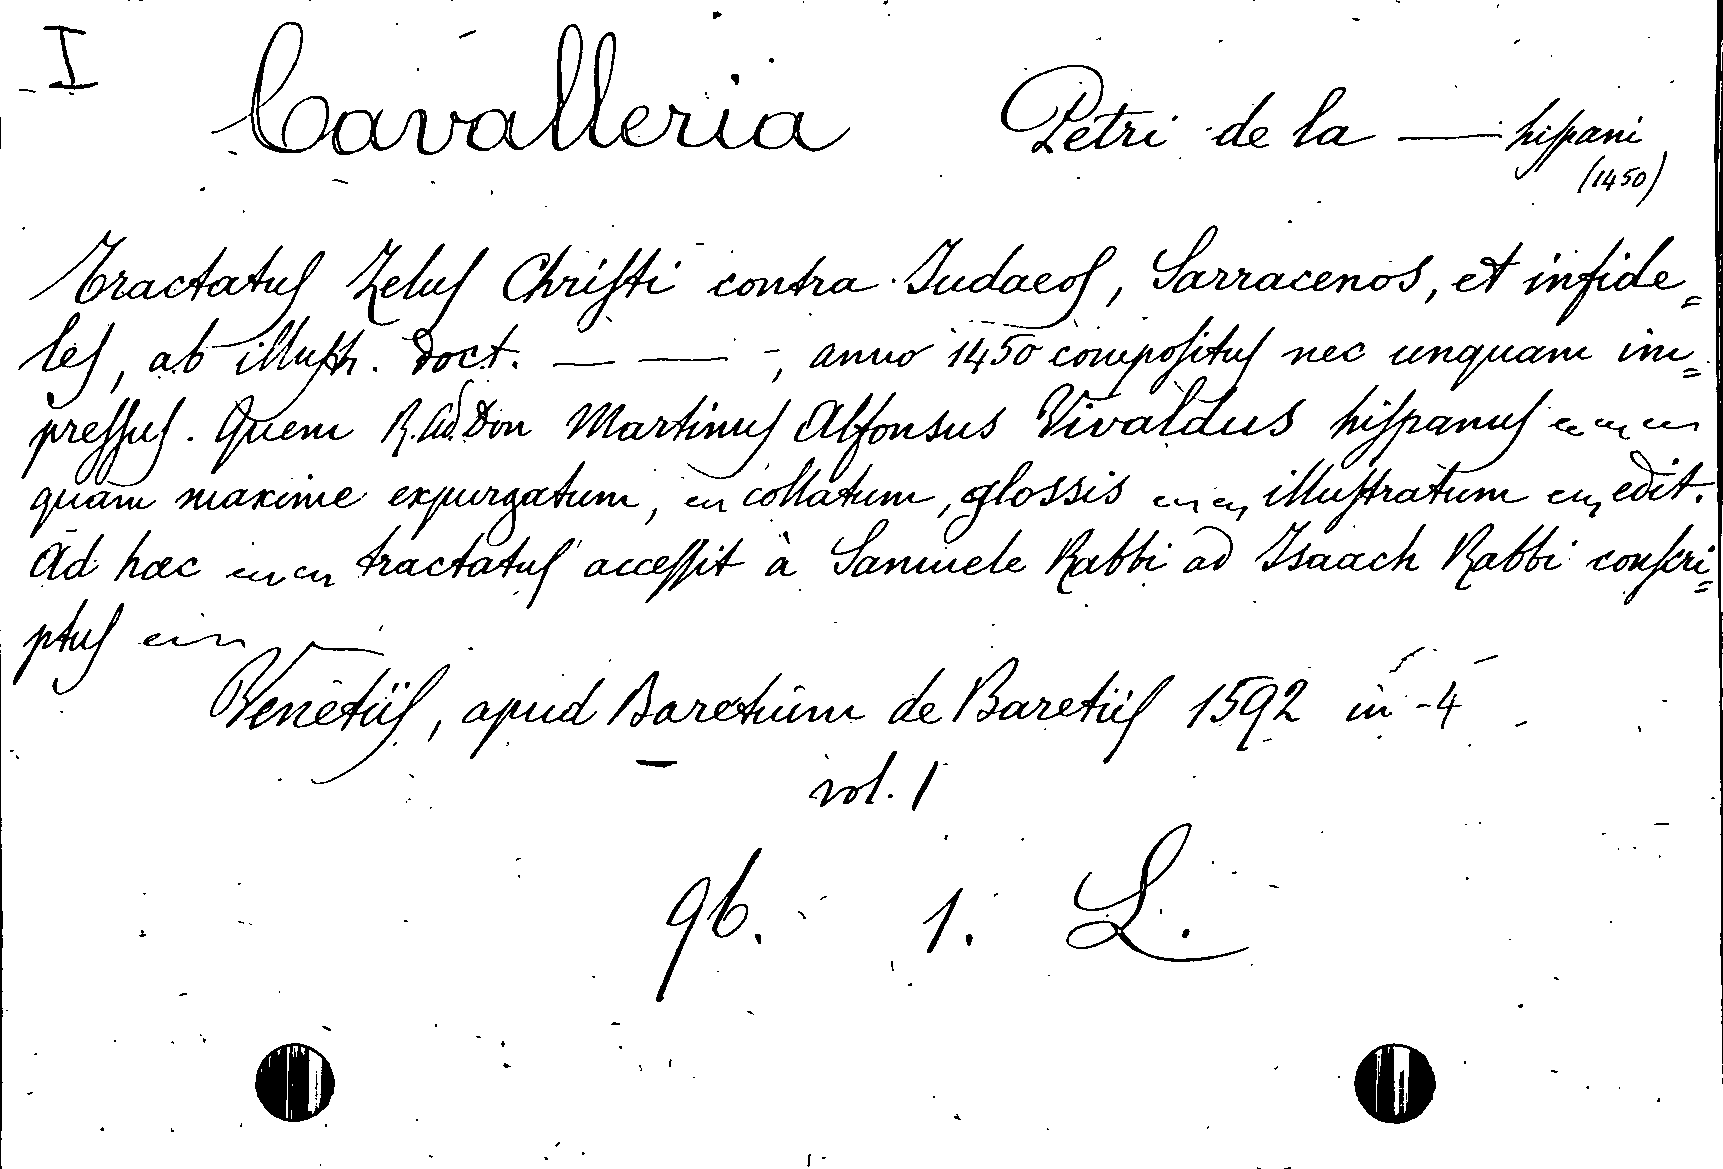 I Cavalleria Petri de la — hispani
(1450)
Tractatus Zelus Christi contra Judaeos, Sarracenos, et infide=
les, ab illustr. Doct. — — -, anno 1450 compositus nec unquam im=
pressus. Quem R. ad. Don Martinus Alfonsus Vivaldus hispanus
quam maxime expurgatum, collatum, glossis illustratum edit.
Ad haec tractatus accessit à Samuele Rabbi ad Isaach Rabbi conscri=
ptus
Venetiis, apud Baretium de Baretiis 1592 in-4
vol. 1
96. 1. L.